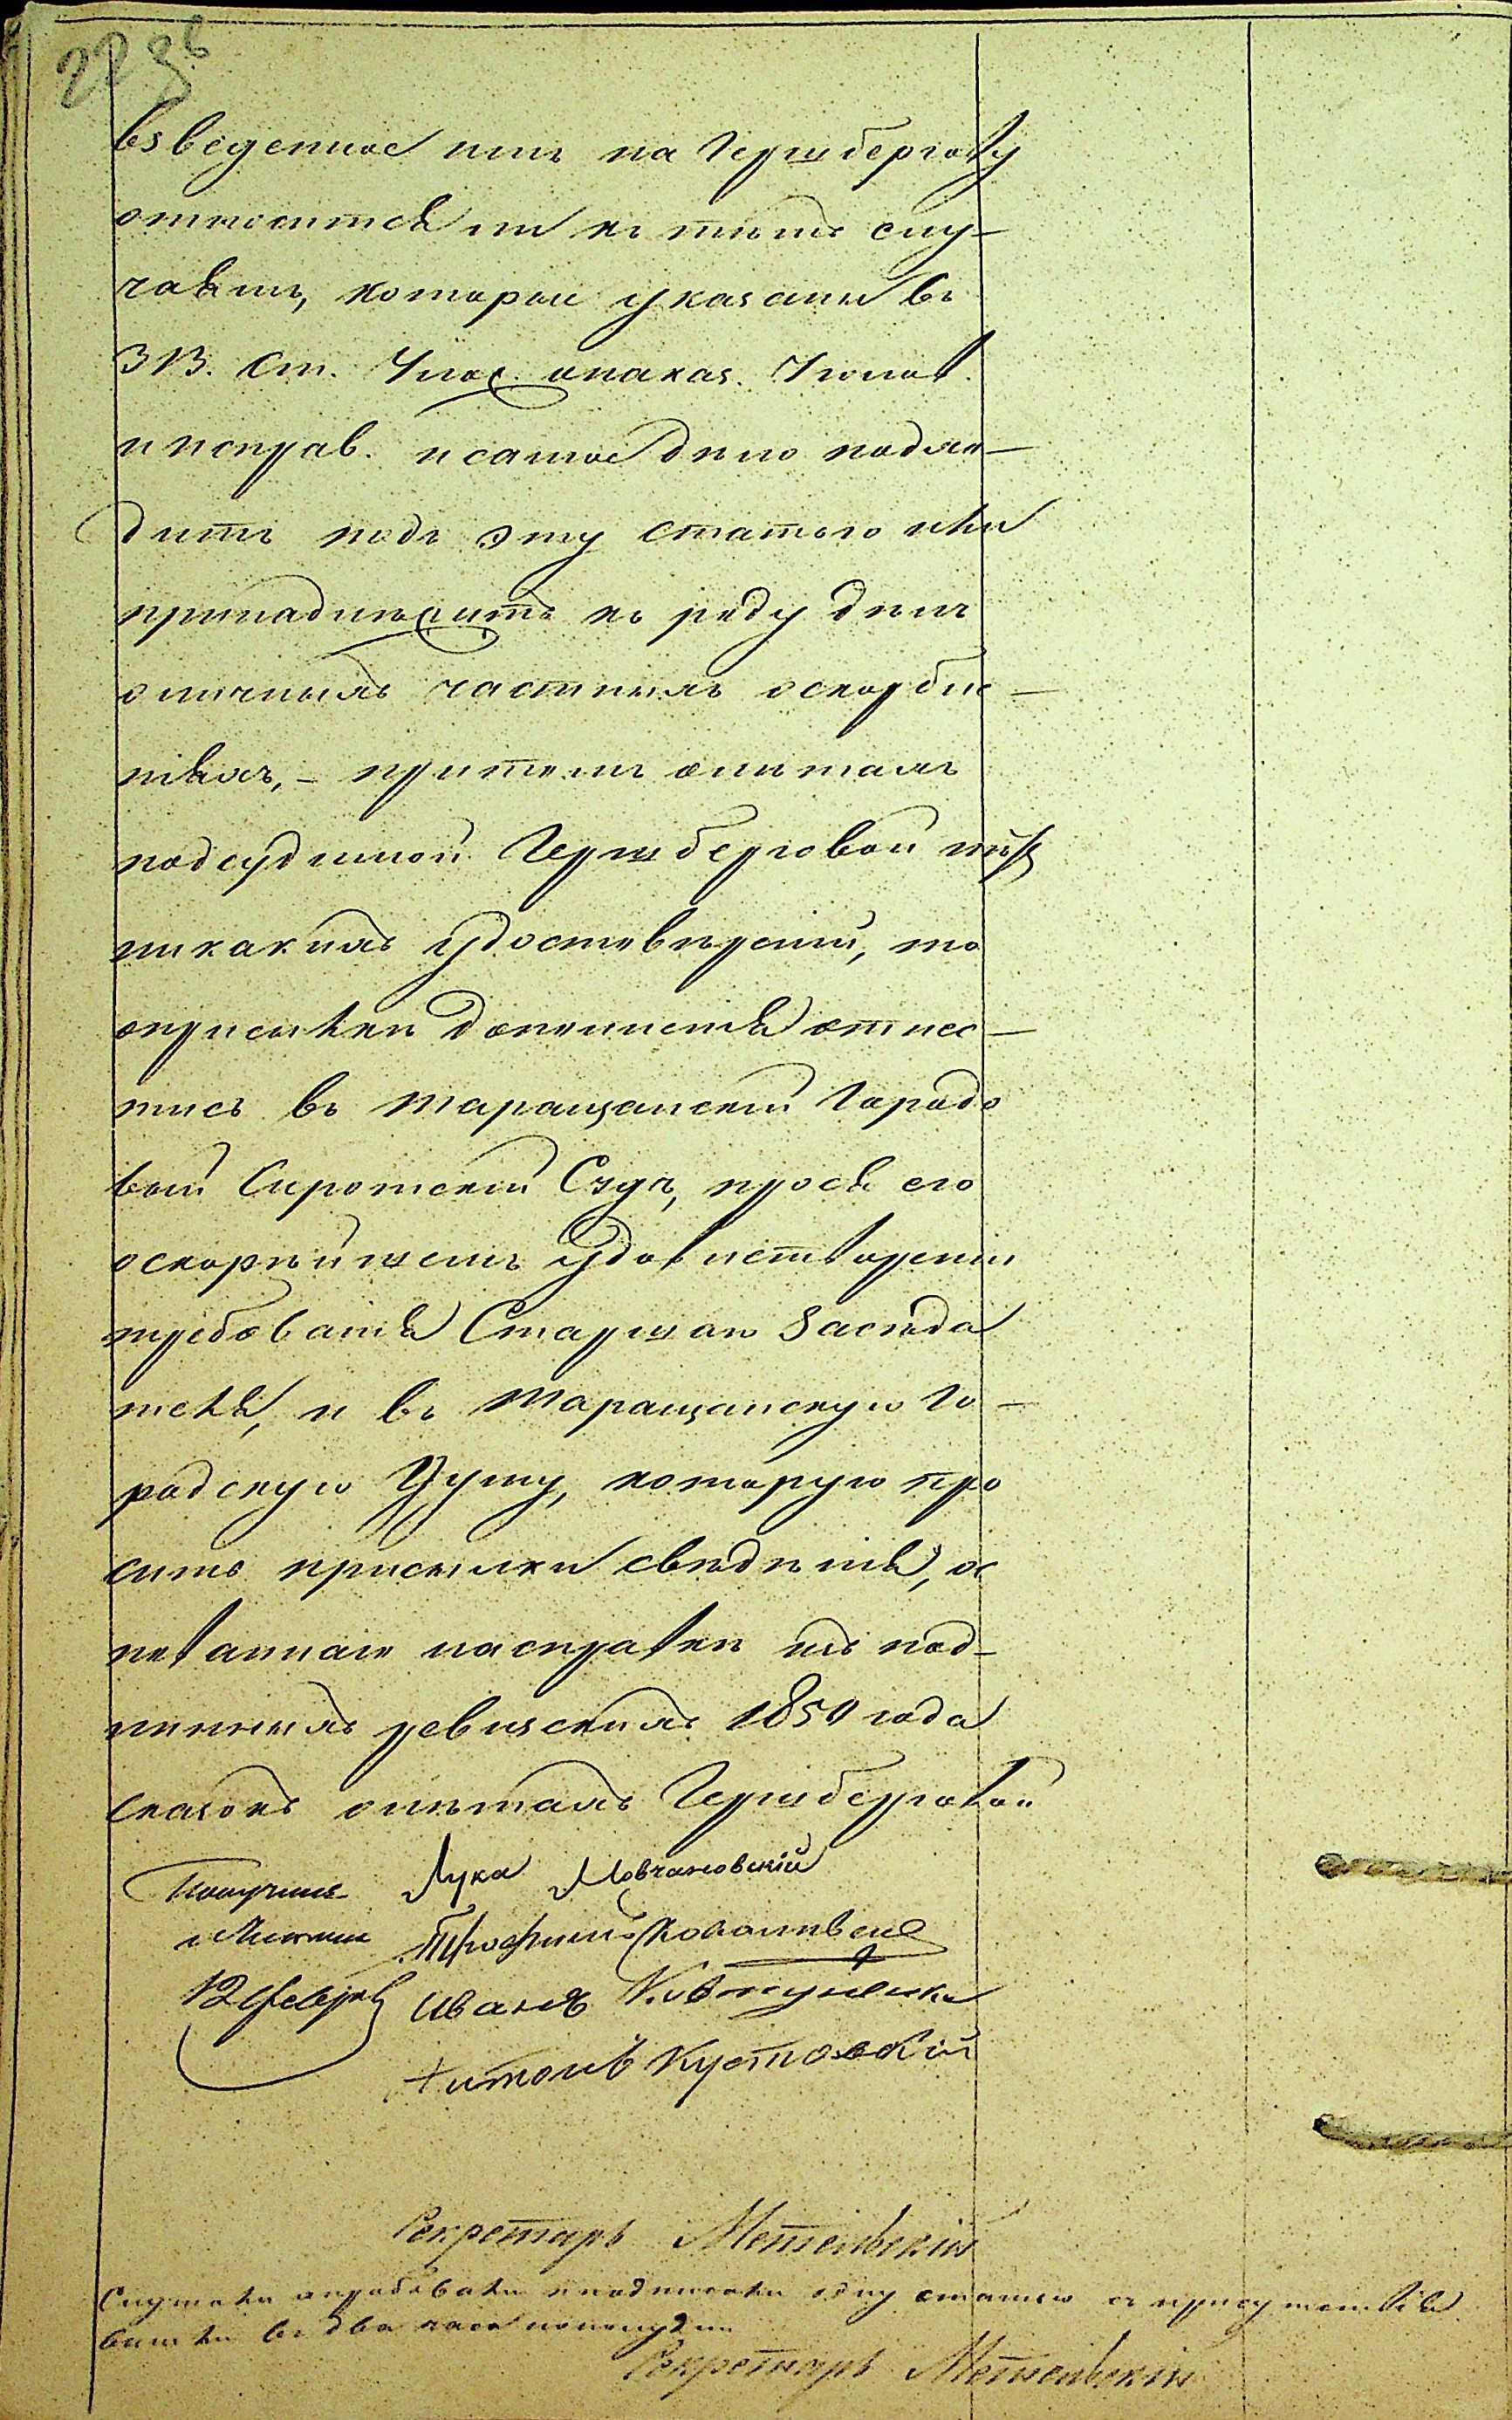 взведенное имъ на Гершбергову
относится ли къ тѣмъ слу-
чаямъ, которые указаны въ
313. Ст. Улож. о наказ. Уголов.
и исправ. и самое дѣло подхо-
дитъ подъ эту статью или
принадлежитъ къ роду дѣлъ
о личныхъ частныхъ оскорбле-
ніяхъ, – при томъ о лѣтахъ
подсудимой Гершберговой нѣтъ
никакихъ удостовѣреній, то
о присылкѣ дополненія отнес-
тись въ Таращанскій Городо
вый Сиротскій Судъ, прося его
о скорѣйшемъ удовлетвореніи
требованія Старшаго Засѣда
теля, и въ Таращанскую Го-
родскую Думу, которую про
сить присылки свѣдѣнія, ос
нованнаго на справкѣ изъ под-
линныхъ ревизскихъ 1850 года
сказокъ о лѣтахъ Гершберговой
Получилъ Лука Мовчановскій
Трофимъ
12 Февраля Иванъ
Антонъ Кустовскій
Секретарь Метельскій
Слушали апробовали и подписали одну статью съ присутствія
вышли въ два часа пополудни
Секретарь Метельскій